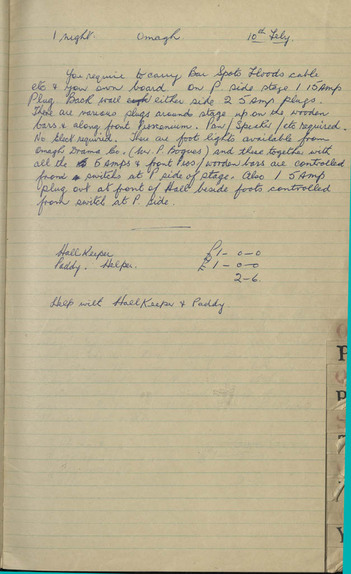 1 night. Omagh. 10th Feby.
You require to carry Bar Spots Floods cable
etc & your own board. On P side stage 1 15 Amp
Plug. Back wall either side 2 5 Amp plugs.
There are various plugs around stage up on the wooden
bars & along front Proscenium. Pan / Specht / etc required.
No elect required. There are foot lights available from
Omagh Drama Co. (Mr. P. Bogues) and these together with
all the 5 Amps & front Pros / wooden bars are controlled
from switches at P side of stage. Also 1 5 Amp
plug out at front of Hall beside foots controlled
from switch at P side.
Hall Keeper £1-0-0
Paddy. Helper. £1-0-0
2-6.
Help with Hall Keeper & Paddy
P